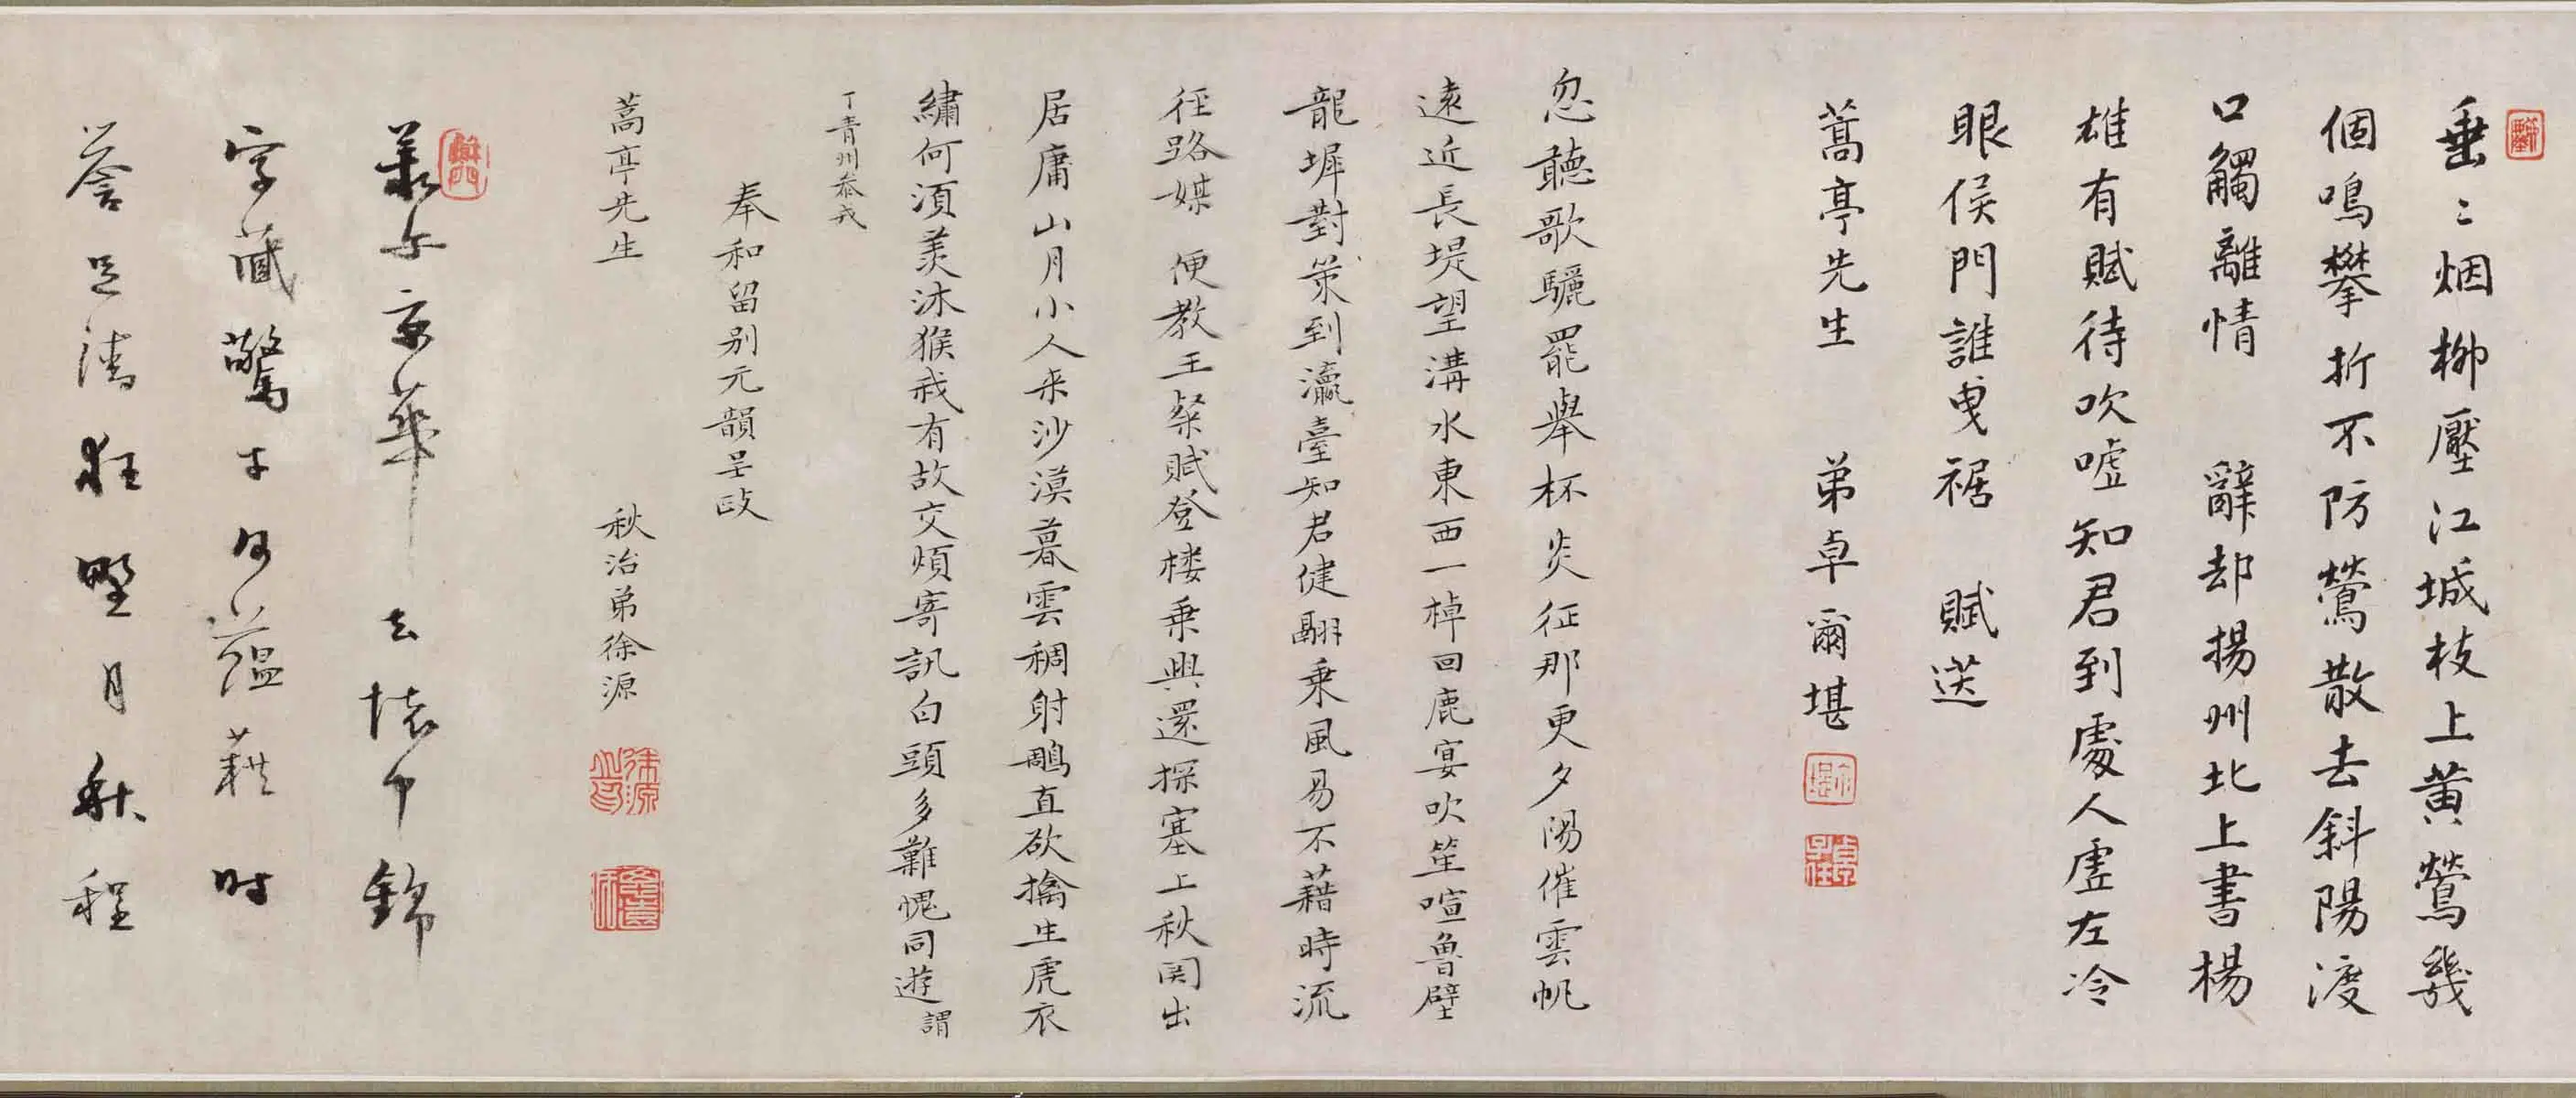 垂〻烟柳壓江城枝上黄鶯幾
個鳴攀折不防鶯散去斜陽渡
口觸離情　辭却揚州北上書楊
雄有賦待吹噓知君到處人虛左冷
眼侯門誰曳裾　賦送
蒿亭先生　弟卓爾堪
忽聽歌驪罷舉杯炎征那更夕陽催雲帆
遠近長堤望溝水東西一棹回鹿宴吹笙喧魯壁
龍墀對策到瀛臺知君健翮乘風易不藉時流
徑路媒　便教王粲賦登楼乗興還探塞上秋関出
居庸山月小人来沙漠暮雲稠射鵰直欲擒生虎衣
繡何須羡沐猴我有故交煩寄訊白頭多難愧同遊謂
丁青州叅戎
奉和留别元韻呈政
蒿亭先生
秋治弟徐源
徐源
京華去懷中錦
字藏驚才多蘊藉时
譽足清狂野月秋程